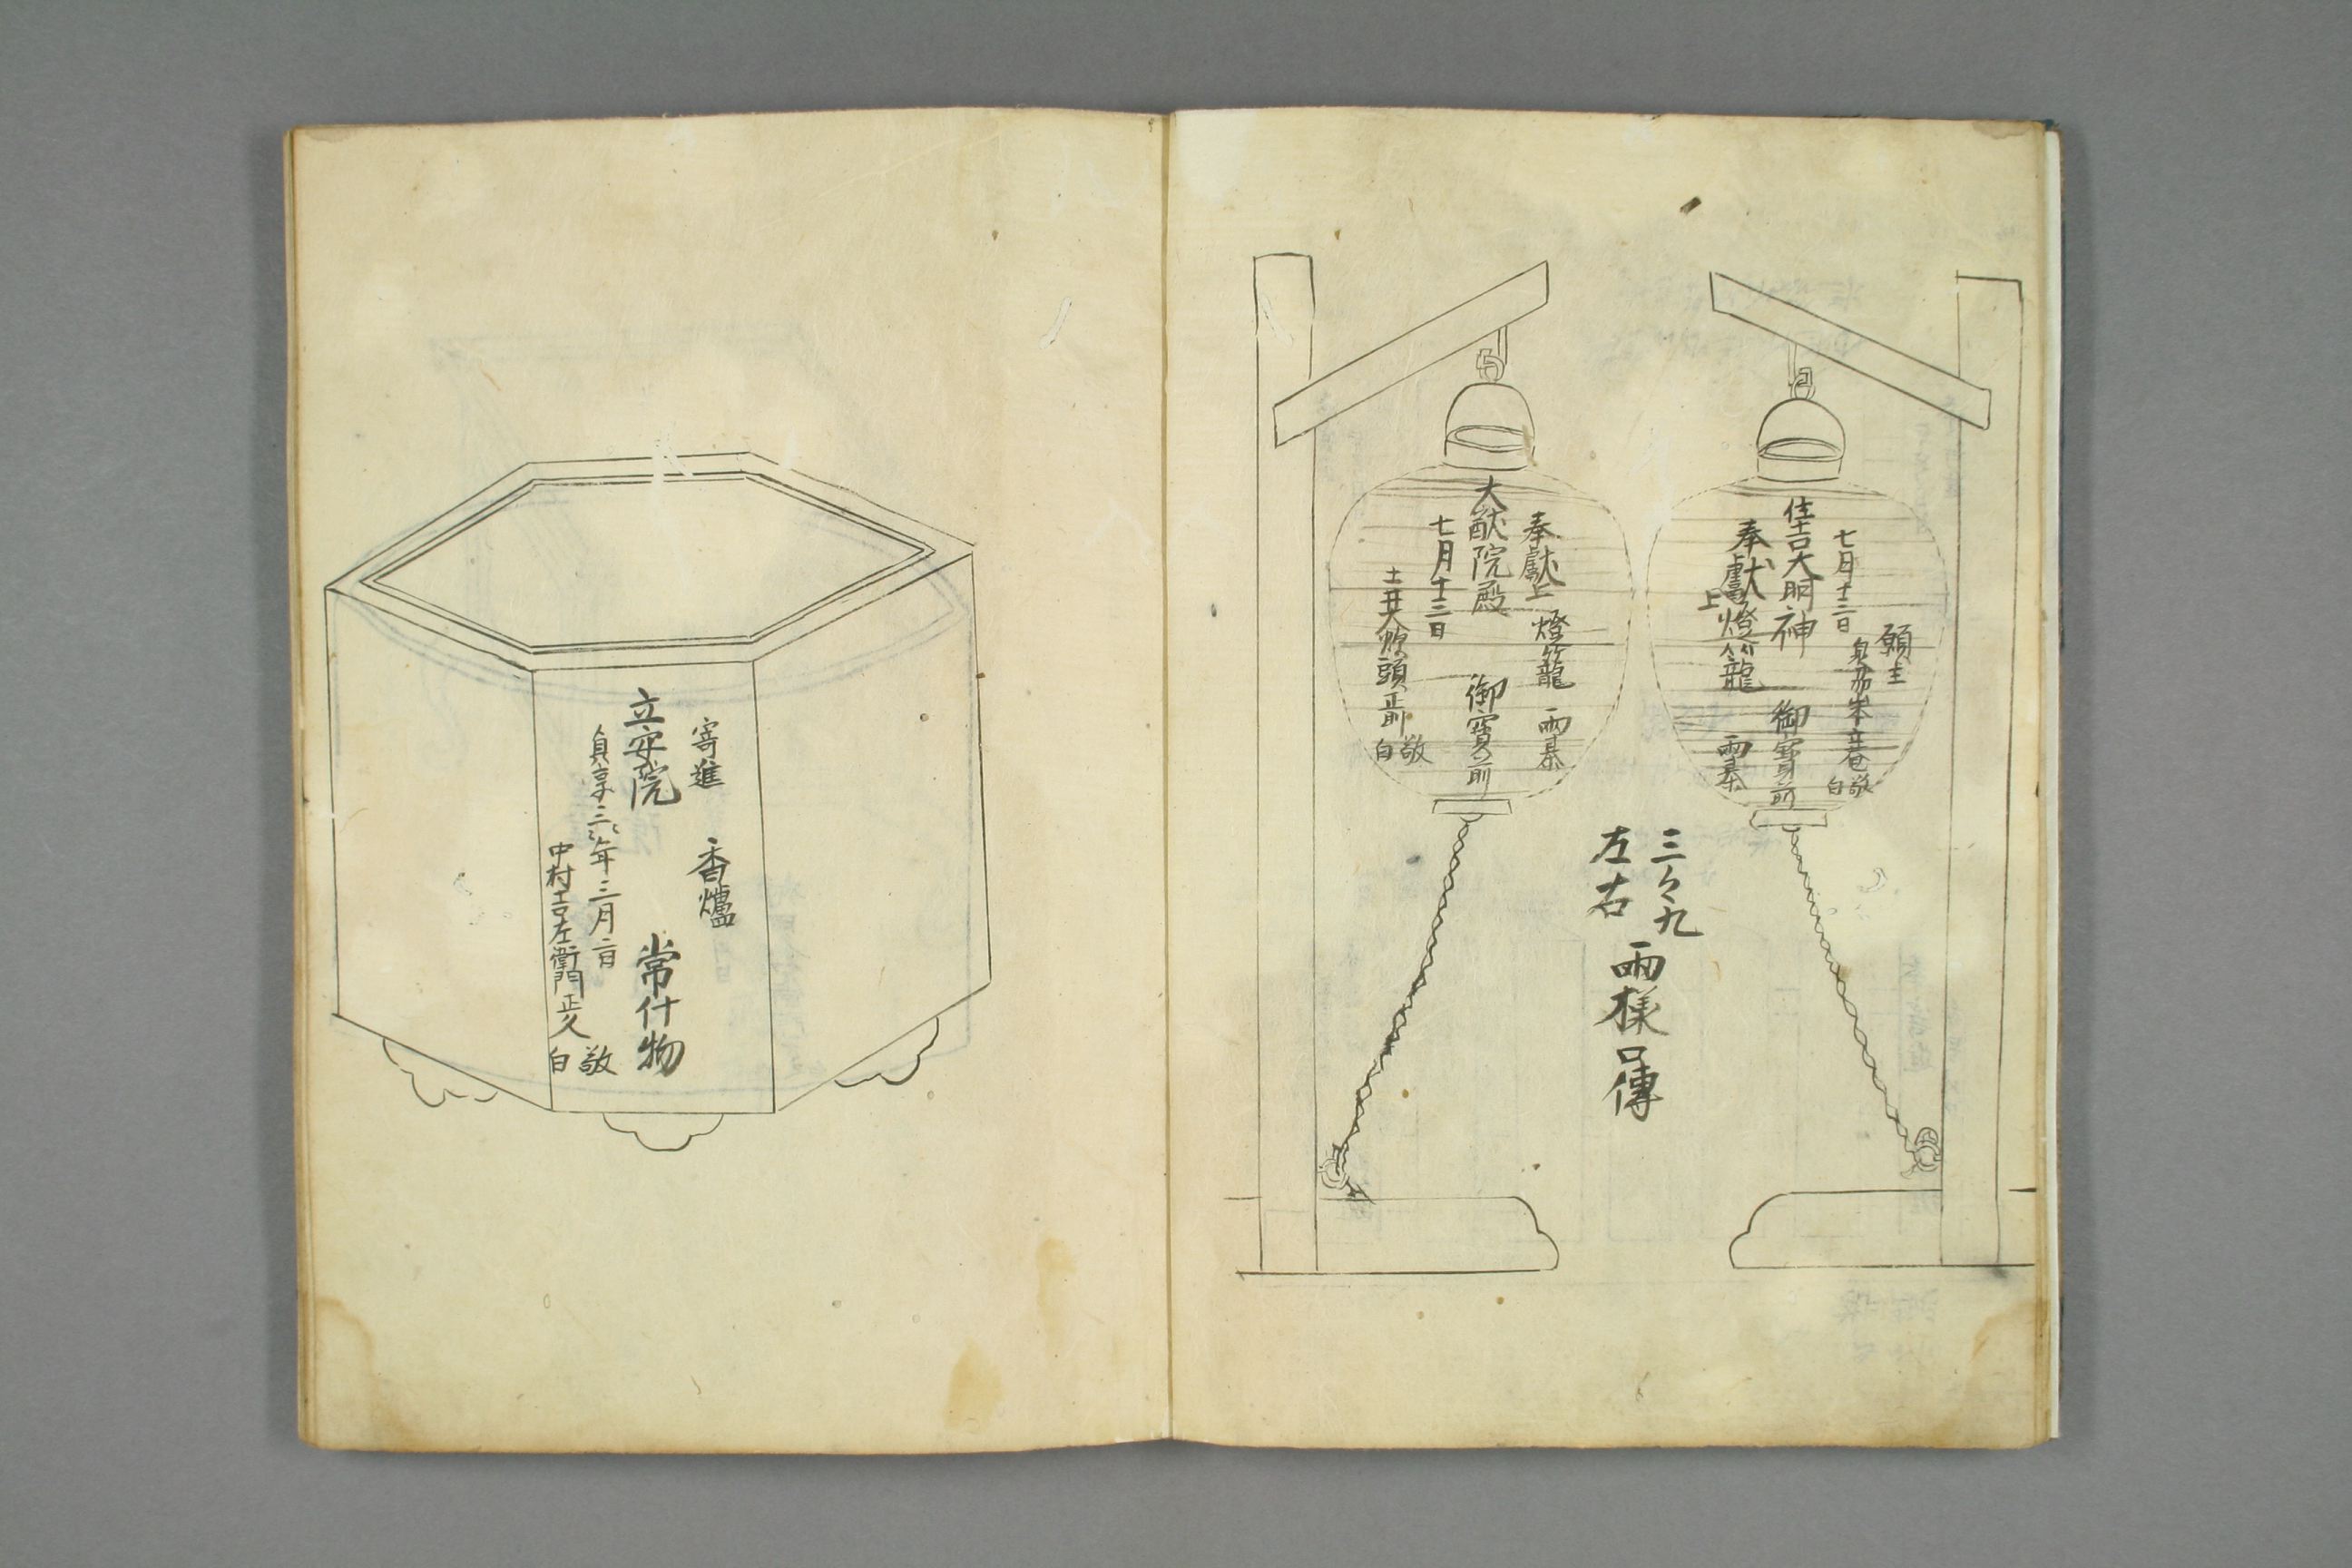 願主
敬白
七月十二日
住吉大明神 御寶前
奉獻上燈籠 兩基
奉獻上 燈籠 兩基
大猷院殿 御寶前
七月十二日
土井大炊頭正前 敬白
三々九
左右
兩樣口傳
寄進 香爐
立安院 常什物
貞享二年三月二日
中村吉左衛門正久 敬白